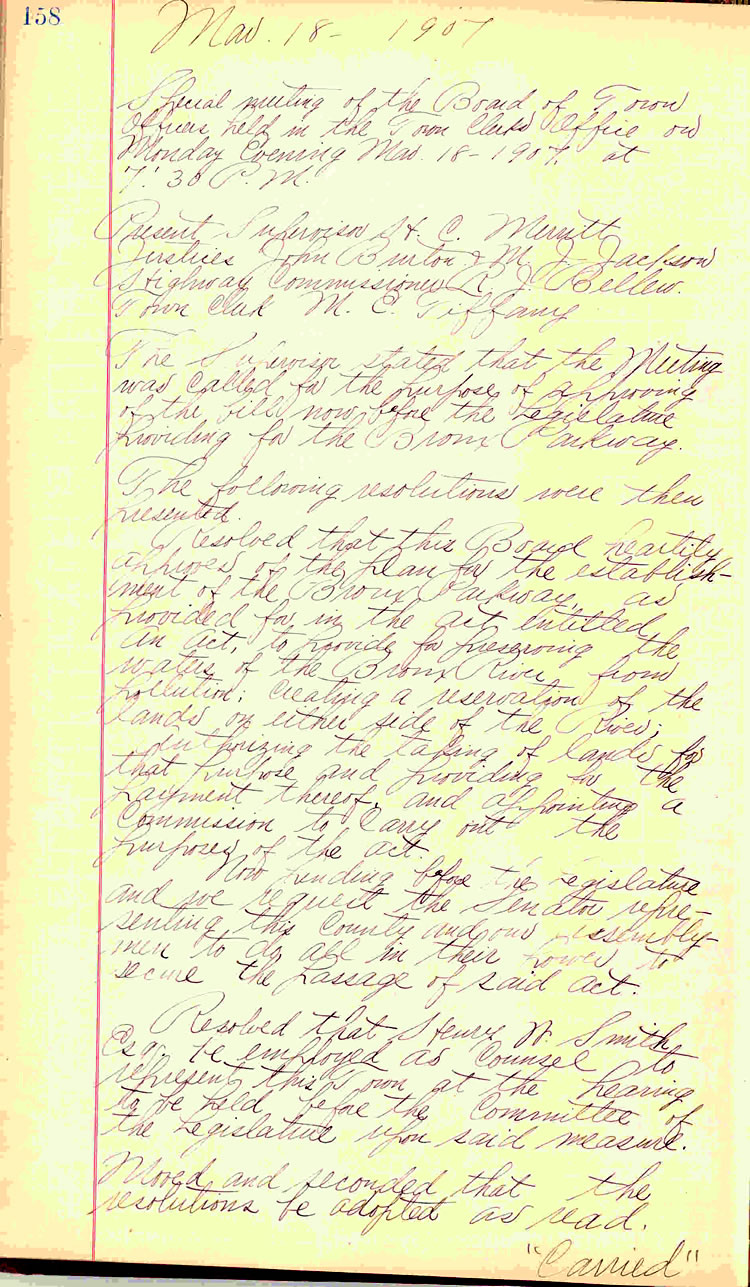 158
Mar. 18 - 1907
Special meeting of the Board of Town
Officers held in the Town Clerks Office on
Monday Evening Mar. 18 - 1907, at
7:30 P.M.
Present Supervisor H. C. Merritt
Justices John Burton & M. J. Jackson
Highway Commissioner R. J. Bellew.
Town Clerk M. C. Tiffany
The Supervisor stated that the Meeting
was called for the purpose of approving
of the bill now before the Legislature
providing for the Bronx Parkway.
The following resolutions were then
presented.
Resolved that this Board heartily
approves of the plan for the establish-
ment of the Bronx Parkway, as
provided for in the act entitled
An act, to provide for preserving the
waters of the Bronx River from
pollution; creating a reservation of the
lands on either side of the River;
Authorizing the taking of lands for
that purpose and providing for the
payment thereof, and appointing a
Commission to Carry out the
purposes of the act.
Now pending before the Legislature
and we request the Senator repre-
senting this County and our Assembly-
men to do all in their power to
secure the passage of said act.
Resolved that Henry W. Smith
Esq. be employed as Counsel to
represent this Town at the hearing
to be held before the Committee of
the Legislature upon said measure.
Moved and seconded that the
resolutions be adopted as read.
"Carried"